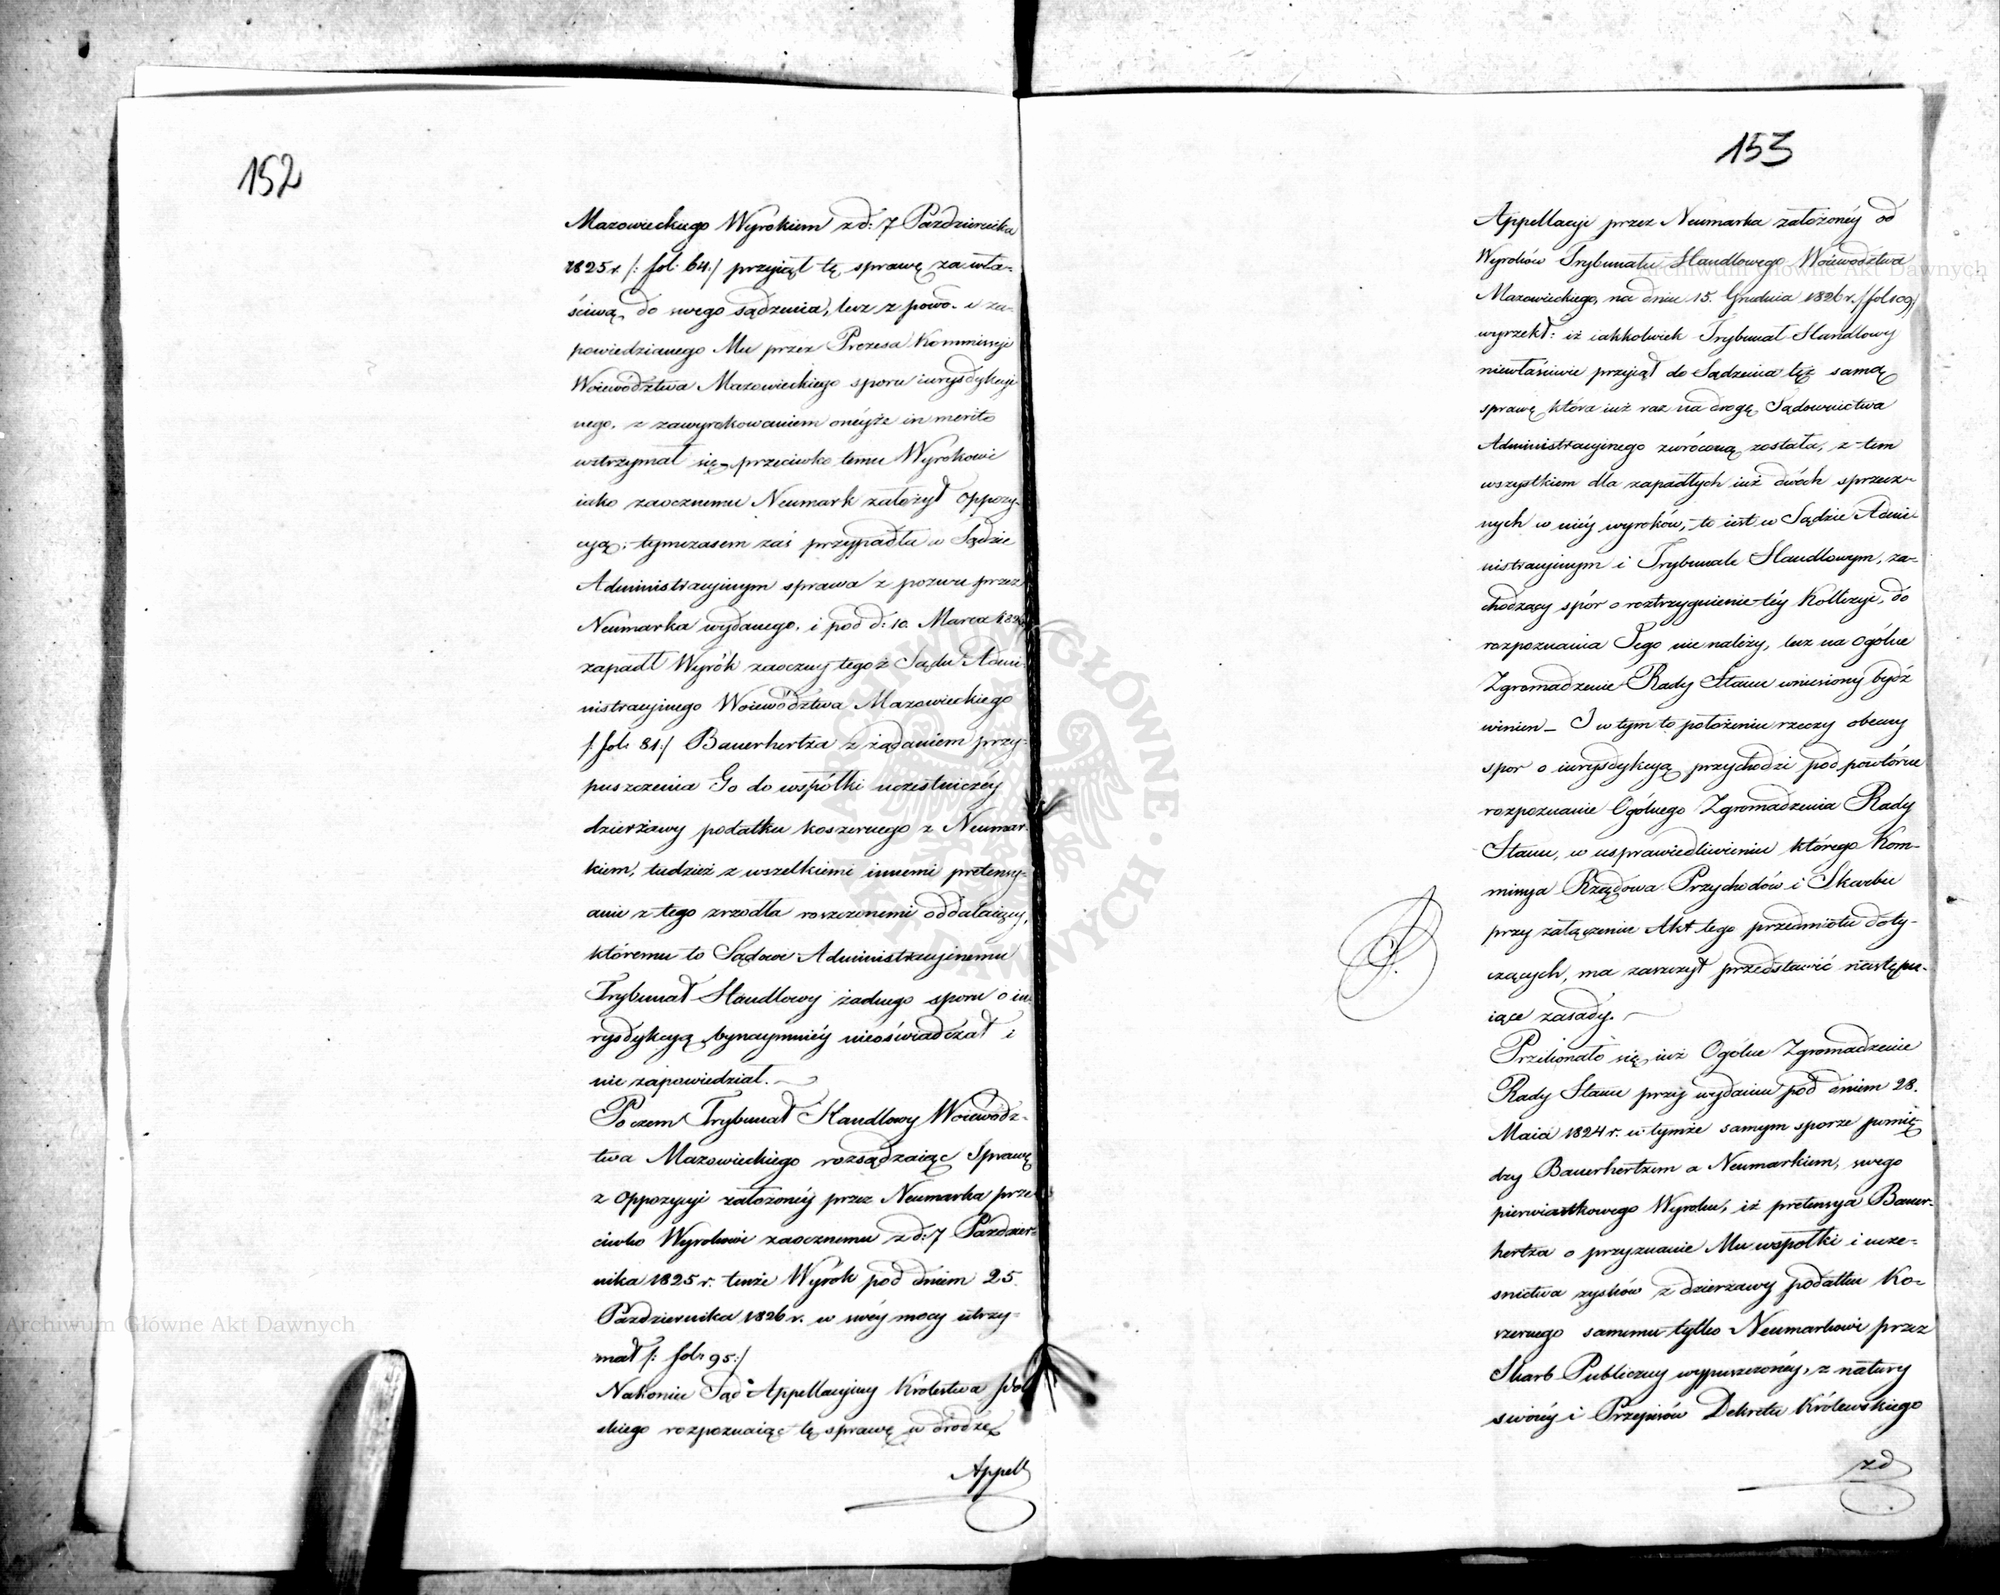 152
Mazowieckiego Wyrokiem z d: 7 Pazdziernika
1825 r. /: fol: 64:/ przyiął tę sprawę za wła-
ściwą do swego sądzenia, lecz z powo- u za-
powiedzianego Mu przez Prezesa Kommissyi
Woiewództwa Mazowieckiego sporu iurysdykcyi
nego, z zawyrokowaniem oneyże in merito
wstrzymał się, przeciwko temu Wyrokowi
iako zaocznemu Neumark założył oppozy-
cyą; tymczasem zaś przypadła w Sądzie
Administracyinym sprawa z pozwu przez
Neumarka wydanego, i pod d: 10. Marca 1826
zapadł Wyrók zaoczny tegoż Sądu Admi-
nistracyinego Woiewództwa Mazowieckiego
/: fol: 81:/ Bauerhertza z żądaniem przy-
puszczenia Go do wspólki uczestniczéy
dzierżawy podatku koszernego z Neumar-
kiem, tudzież z wszelkiemi innemi pretensy-
ami z tego zrzodła roszczonemi oddalaiący,
któremu to Sądowi Administracyinemu
Trybunał Handlowy żadnego sporu o iu-
rysdykcyą bynaymniéy nieoświadczał i
nie zapowiedział.
Poczem Trybunał Handlowy Woiewódz-
twa Mazowieckiego rozsądzaiąc Sprawę
z Oppozycyi założonéy przez Neumarka prze-
ciwko Wyrokowi zaocznemu z d: 7 Pazdzier-
nika 1825 r. tenże Wyrok pod dniem 25.
Pazdziernika 1826 r. w swéy mocy utrzy-
mał /: fol: 95:/
Nakoniec Sąd Appellacyiny Królestwa Pol-
skiego rozpoznaiąc tę sprawę w drodze
Appell
153
Appellacyi przez Neumarka założonéy od
Wyroków Trybunału Handlowego Woiewództwa
Mazowieckiego, na dniu 15. Grudnia 1826 r. /: fol 109/
wyrzekł: iż iakkolwiek Trybunał Handlowy
niewłaściwie przyiął do Sądzenia tęż samą
sprawę która iuż raz na drogę Sądownictwa
Administracyinego zwróconą została, z tem
wszystkiem dla zapadłych iuż dwóch sprzecz-
nych w niéy wyroków, to iest w Sądzie Admi-
nistracyinym i Trybunale Handlowym, za-
chodzący spór o roztrzygnienie téy Kollizyi, do
rozpoznania Jego nie należy, lecz na Ogólne
Zgromadzenie Rady Stanu wniesiony bydź
winien – I w tym to położeniu rzeczy obecny
spor o iurysdykcyą przychodzi pod powtórne
rozpoznanie Ogólnego Zgromadzenia Rady
Stanu, w usprawiedliwieniu którego Kom-
missya Rządowa Przychodów i Skarbu
przy załączeniu Akt tego przedmiotu doty-
czących, ma zaszczyt przedstawić następu-
iące zasady.
Przekonało się iuż Ogólne Zgromadzenie
Rady Stanu przy wydaniu pod dniem 28.
Maia 1824 r. w tymże samym sporze pomię-
dzy Bauerhertzem a Neumarkiem, swego
pierwiastkowego Wyroku, iż pretensya Bauer-
hertza o przyznanie Mu wspołki i ucze-
snictwa zysków z dzierżawy podatku Ko-
szernego samemu tylko Neumarkowi przez
Skarb Publiczny wypuszczonéy, z natury
swoiéy i Przepisów Dekretu Królewskiego
zd
Archiwum Główne Akt Dawnych
Archiwum Główne Akt Dawnych
ARCHIWUM GŁÓWNE AKT DAWNYCH